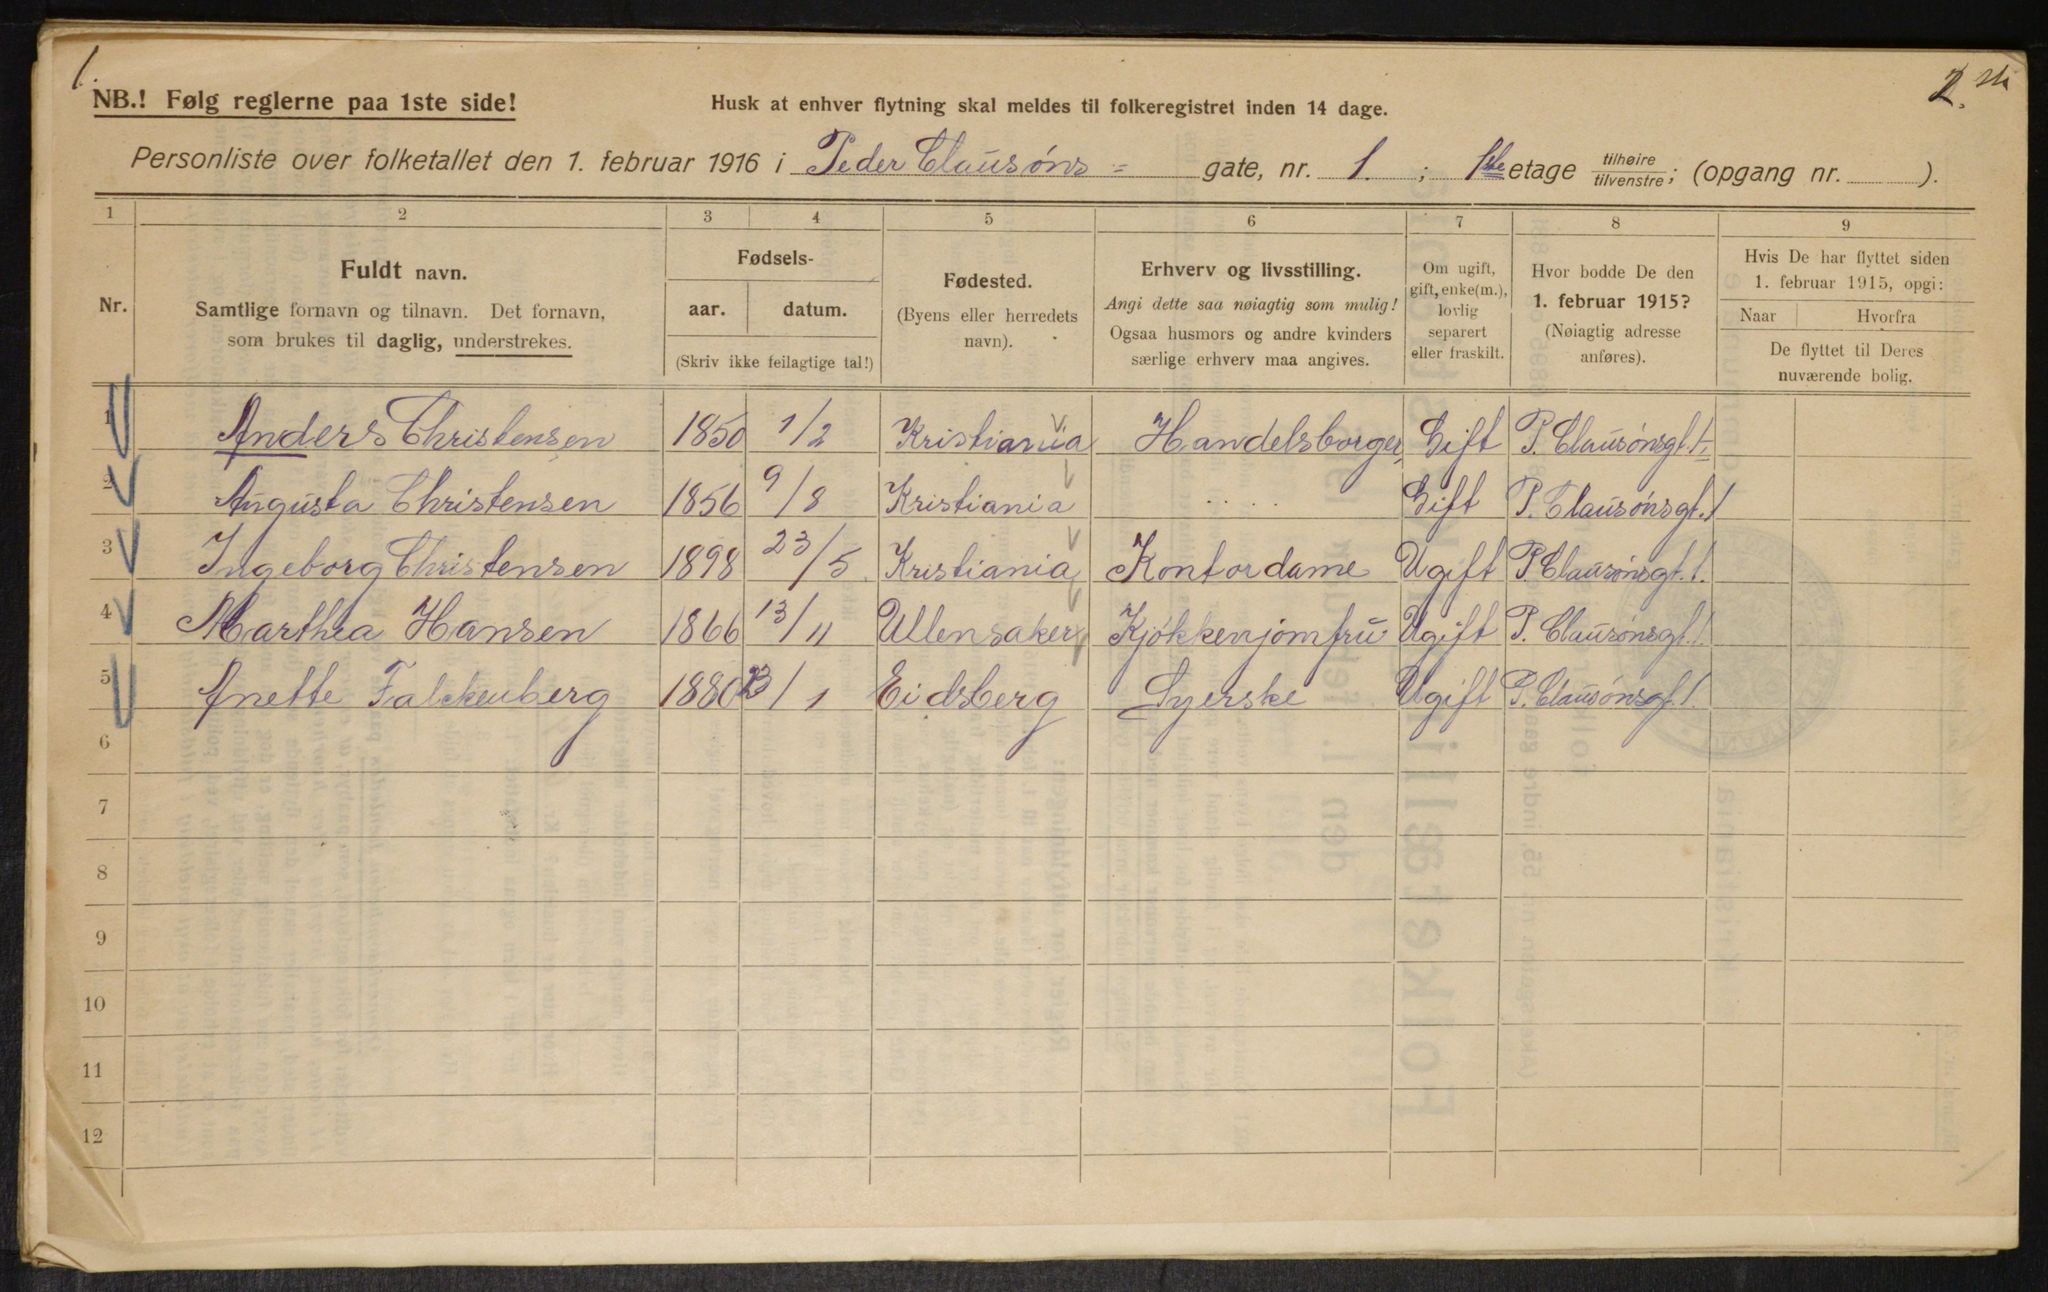 1. 2. sti
NB.! Følg reglerne paa 1ste side! Husk at enhver flytning skal meldes til folkeregistret inden 14 dage.
Personliste over folketallet den 1. februar 1916 i Peder Clausøns = gate, nr. 1. ; 1ste etage tilhøire/tilvenstre; (opgang nr. ).
1 2 3 4 5 6 7 8 9
Nr.
Fuldt navn.
Samtlige fornavn og tilnavn. Det fornavn,
som brukes til daglig, understrekes.
Fødsels-
aar. datum.
(Skriv ikke feilagtige tal!)
Fødested.
(Byens eller herredets
navn).
Erhverv og livsstilling.
Angi dette saa nøiagtig som mulig!
Ogsaa husmors og andre kvinders
særlige erhverv maa angives.
Om ugift,
gift, enke(m.),
lovlig
separert
eller fraskilt.
Hvor bodde De den
1. februar 1915?
(Nøiagtig adresse
anføres).
Hvis De har flyttet siden
1. februar 1915, opgi:
Naar Hvorfra
De flyttet til Deres
nuværende bolig.
1 Anders Christensen 1850 1/2 Kristiania Handelsborger, Gift P. Clausønsgt. 1.
2 Augusta Christensen 1856 9/8 Kristiania Gift P. Clausønsgt. 1
3 Ingeborg Christensen 1898 23/5 Kristiania Kontordame Ugift P. Clausønsgt. 1.
4 Marthea Hansen 1866 13/11 Ullensaker Kjøkkenjomfru Ugift P. Clausønsgt. 1.
5 Anette Falckenberg 1880 23/1 Eidsberg Syerske Ugift P. Clausønsgt. 1.
6
7
8
9
10
11
12